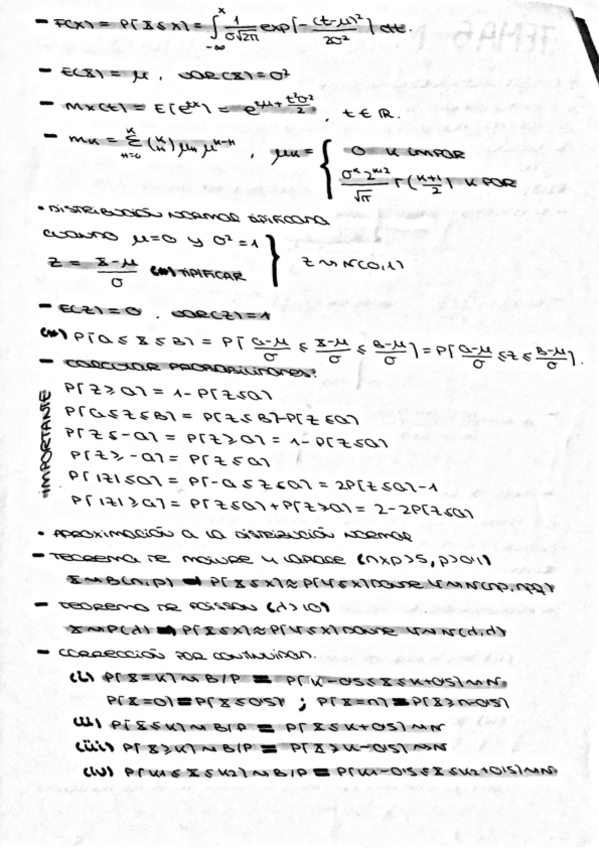 - F(x) = P[X ≤ x] = ∫_{-∞}^{x} 1/(σ√2π) exp[-(t-μ)²/2σ²] dt
- E(X) = μ, VAR(X) = σ²
- Mx(t) = E[e^{tx}] = e^{tμ + t²σ²/2}, t ∈ ℝ.
- mk = Σ_{n=0}^{k} (k n) μn μ^{k-n}, μk = { 0 K IMPAR
σ^k 2^{k/2}/√π Γ(k+1/2) K PAR
• DISTRIBUCIÓN NORMAL TIPIFICADA
CUANDO μ=0 y σ²=1
Z = X-μ/σ (*) TIPIFICAR } Z ~ N(0,1)
- E(Z)=0, VAR(Z)=1
(*) P[a ≤ X ≤ B] = P[a-μ/σ ≤ X-μ/σ ≤ B-μ/σ] = P[a-μ/σ ≤ Z ≤ B-μ/σ].
- CALCULAR PROBABILIDADES:
IMPORTANTE
P[Z ≥ a] = 1 - P[Z ≤ a]
P[a ≤ Z ≤ B] = P[Z ≤ B] - P[Z ≤ a]
P[Z ≤ -a] = P[Z ≥ a] = 1 - P[Z ≤ a]
P[Z ≥ -a] = P[Z ≤ a]
P[|Z| ≤ a] = P[-a ≤ Z ≤ a] = 2P[Z ≤ a] - 1
P[|Z| ≥ a] = P[Z ≤ a] + P[Z ≥ a] = 2 - 2P[Z ≤ a]
• APROXIMACIÓN A LA DISTRIBUCIÓN NORMAL
- TEOREMA DE MOIVRE Y LAPLACE (n×p>5, p>0'1)
X ~ B(n,p) ➡ P[X ≤ x] ≈ P[Y ≤ x] DONDE Y ~ N(np, npq)
- TEOREMA DE POISSON (λ>10)
X ~ P(λ) ➡ P[X ≤ x] ≈ P[Y ≤ x] DONDE Y ~ N(λ,λ)
- CORRECCIÓN POR CONTINUIDAD.
(i) P[X=K] ~ B/P = P[K-0'5 ≤ X ≤ K+0'5] ~ N
P[X=0] = P[X ≤ 0'5] ; P[X=n] = P[X ≥ n-0'5]
(ii) P[X ≤ K] ~ B/P = P[X ≤ K+0'5] ~ N
(iii) P[X ≥ K] ~ B/P = P[X ≥ K-0'5] ~ N
(iv) P[K1 ≤ X ≤ K2] ~ B/P = P[K1-0'5 ≤ X ≤ K2+0'5] ~ N